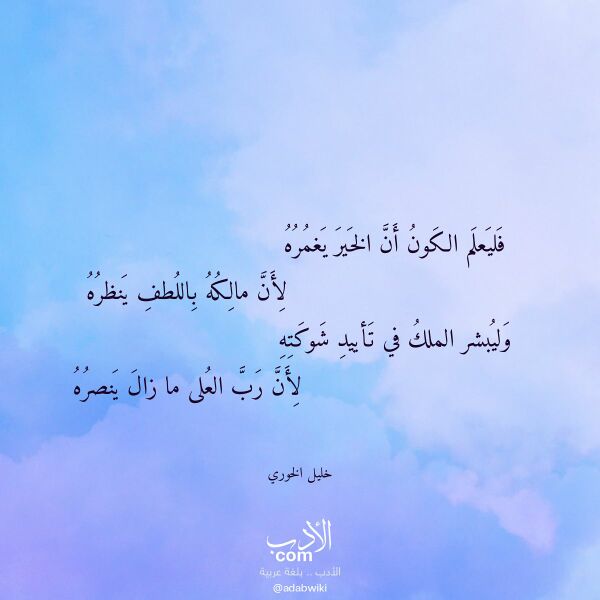 فَليَعلَم الكَونُ أَنَّ الخَيرَ يَغمُرُهُ
لِأَنَّ مالِكُهُ بِاللُطفِ يَنظرُهُ
وَليُبشر الملكُ في تَأييدِ شَوكَتِهِ
لِأَنَّ رَبَّ العُلى ما زالَ يَنصرُهُ
خليل الخوري
الأدب
com
الأدب .. بلغة عربية
@adabwiki